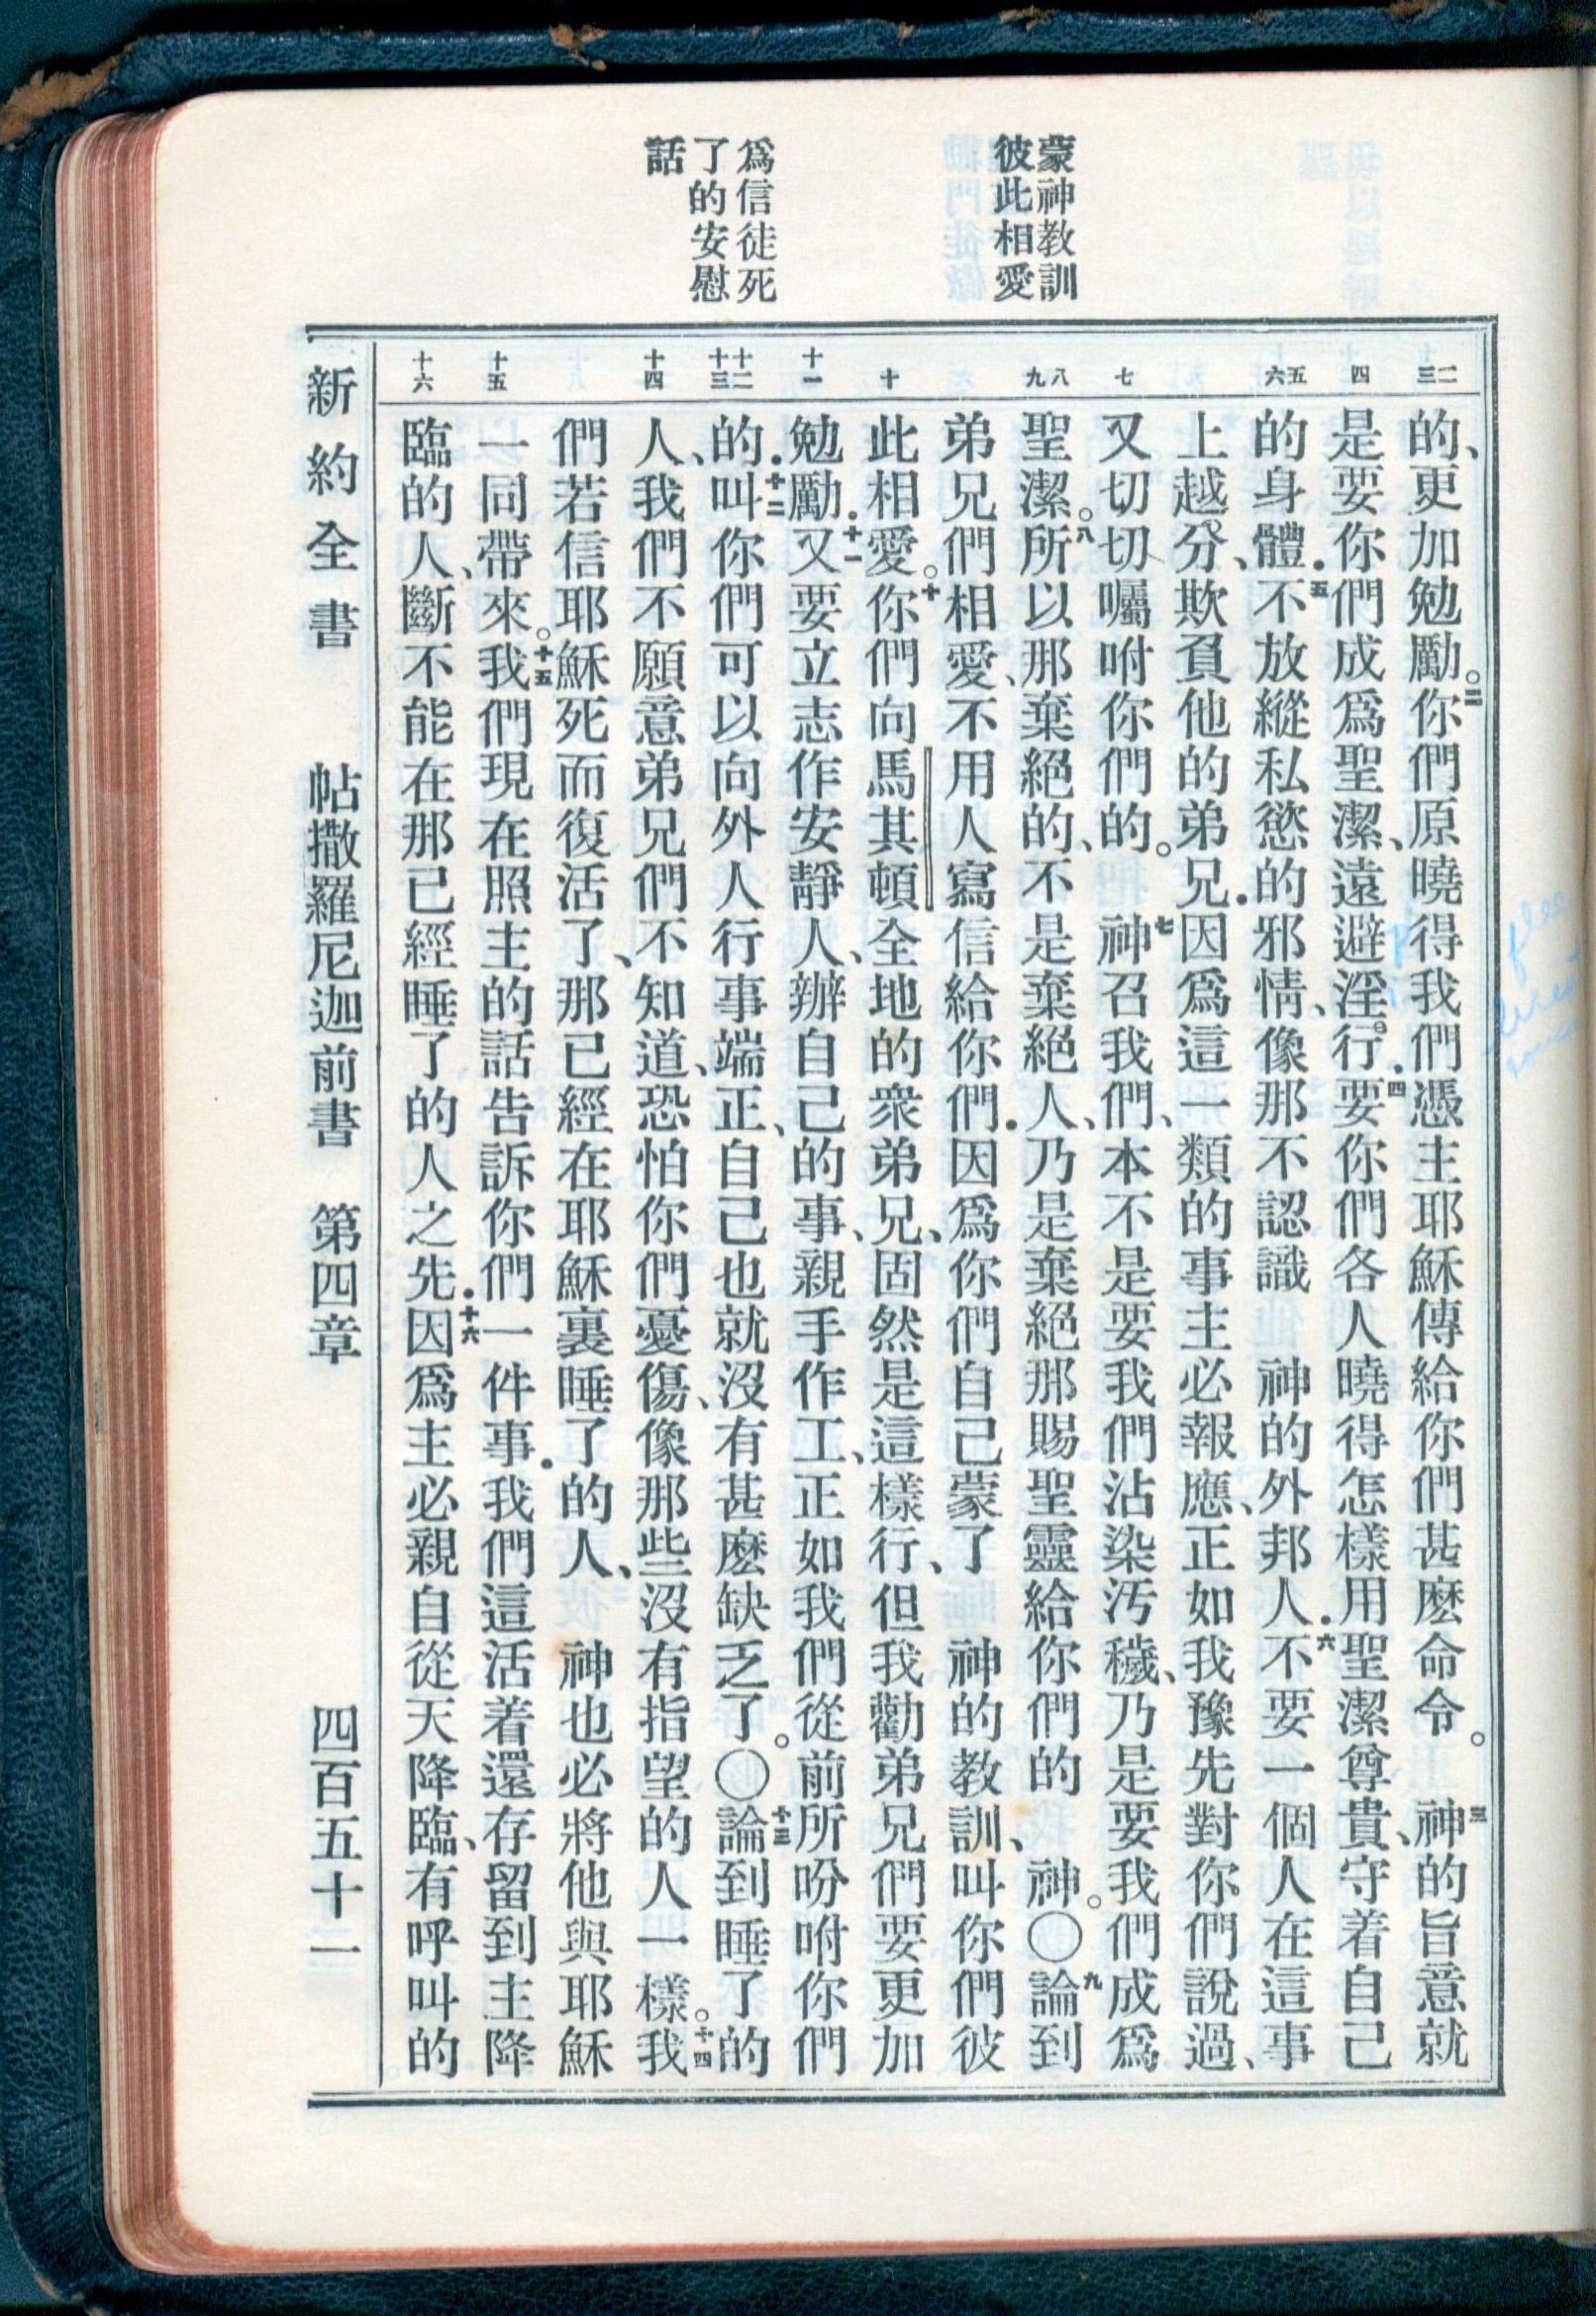 蒙神教訓
彼此相愛
爲信徒死
了的安慰
話
二 三
四
五 六
七
八 九
十
十一
十二 十三
十四
十五
十六
的、更加勉勵。二你們原曉得我們憑主耶穌傳給你們甚麽命令。三神的旨意就
是要你們成爲聖潔、遠避淫行．四要你們各人曉得怎樣用聖潔尊貴、守着自己
的身體．五不放縱私慾的邪情、像那不認識 神的外邦人．六不要一個人在這事
上越分、欺負他的弟兄．因爲這一類的事主必報應、正如我豫先對你們說過、
又切切囑咐你們的。七神召我們、本不是要我們沾染汚穢、乃是要我們成爲
聖潔。八所以那棄絕的、不是棄絕人、乃是棄絕那賜聖靈給你們的 神。〇九論到
弟兄們相愛、不用人寫信給你們．因爲你們自己蒙了 神的教訓、叫你們彼
此相愛。十你們向馬其頓全地的衆弟兄、固然是這樣行、但我勸弟兄們要更加
勉勵．十一又要立志作安靜人、辦自己的事、親手作工、正如我們從前所吩咐你們
的．十二叫你們可以向外人行事端正、自己也就沒有甚麽缺乏了。〇十三論到睡了的
人、我們不願意弟兄們不知道、恐怕你們憂傷、像那些沒有指望的人一樣。十四我
們若信耶穌死而復活了、那已經在耶穌裏睡了的人、 神也必將他與耶穌
一同帶來。十五我們現在照主的話告訴你們一件事．我們這活着還存留到主降
臨的人、斷不能在那已經睡了的人之先．十六因爲主必親自從天降臨、有呼叫的
新約全書 帖撒羅尼迦前書 第四章 四百五十一